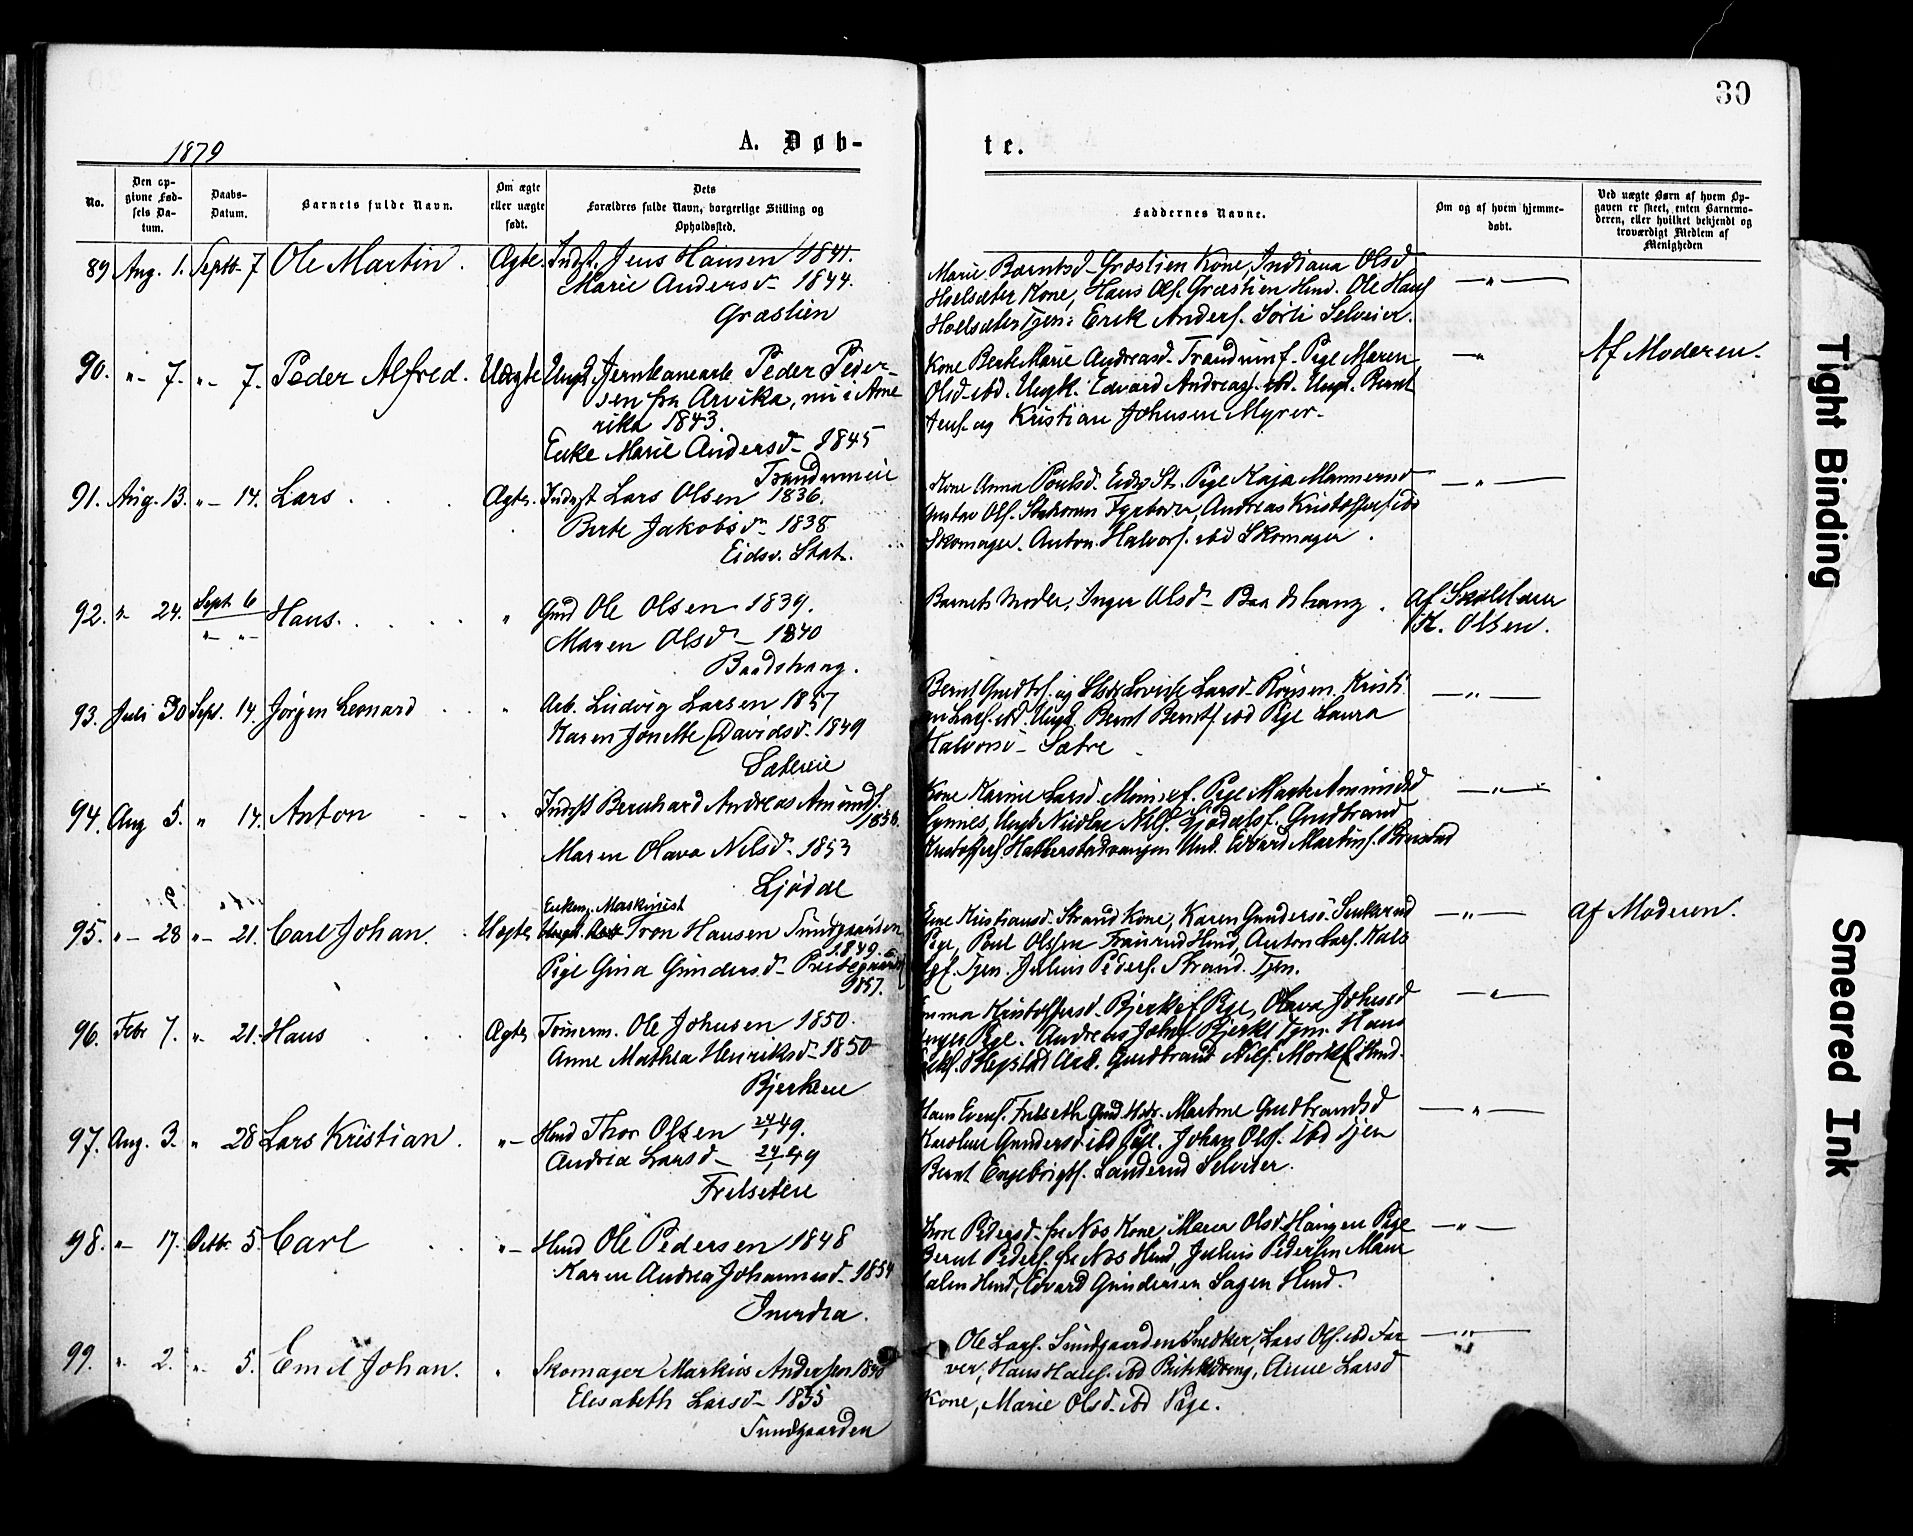 30
1879
A. Døb-
te.
No.
Den op-
givne Fød-
sels Da-
tum.
Daabs-
Datum.
Barnets fulde Navn.
Om ægte
eller uægte
født.
Dets
Forældres fulde Navn, borgerlige Stilling og
Opholdssted.
Faddernes Navne.
Om og af hvem hjemme-
døbt.
Ved uægte Børn af hvem Op-
gaven er skeet, enten Barnemo-
deren, eller hvilket bekjendt og
troværdigt Medlem af
Menigheden
89 Aug. 1. Septb. 7 Ole Martin. Ægte. Indst. Jens Hansen 1841.
Marie Andersd. 1844.
Græslien
Marie Berntsd. Græslien Kone, Indiana Olsd.
Hoelsæter Kone, Hans Ols. Græslien Hmd. Ole Hans
Hoelsæter Tjen: Erik Anders. Sørli Selveier.
— " —
90. "- 7. "- 7. Peder Alfred. Uægte Ungk. Jernbanearb. Peder Peder-
sen fra Arvika, nu i Ame
rika 1843.
Enke Marie Andersd. 1845
Trandumeie
Kone Berte Marie Andreasd. Trandumf. Pige Maren
Olsd. ibd. Ungk. Edvard Andreas. ibd. Ungk. Bernt
Jens. og Kristian Johnsen Myrer.
— "
Af Moderen.
91. Aug. 13. "- 14. Lars Ægte. Indst. Lars Olsen 1836.
Berte Jakobsd. 1838
Eidsv. Stat.
Kone Anna Poulsd. Eidsv. St. Pige Kaja
Gustav Ols. Andreas Kristoffers. ibd
Skomager. Anton Halvors. ibd Skomager.
— " —
92. " 24. Sept 6 Hans. " Gmd Ole Olsen 1839.
" "-
Maren Olsd. 1840
Baadshaug.
Barnets Moder, Inger Olsd. Baadshaug.
Af Skolelærer
K. Olsen.
93. Juli 30 Sept. 14. Jørgen Leonard " Arb. Ludvig Larsen 1857
Karen Jonette Davidsd. 1849
Sætreeie
Bernt og Lovise Larsd. Kristi
an Lars. ibd. Ungk. Bernt Bernts. ibd Pige Laura
Halvorsd. Sætre
— " —
94. Aug 5. " 14. Anton " Indst Bernhard Andreas Amunds.
Maren Olava Nilsd. 1853
Ljødal
Kone Karine Larsd. Pige Marte Amundsd
Gudbrand
Kristoffers. Edvard Martins.
— " —
95. "- 28 "- 21. Carl Johan. Uægte Enkem. Maskinist
Iver Hansen Sundgaarden
1849.
Pige Gina Gundersd. Prestegaard
1857.
Kristiansd. Strand Kone, Karen Gundersd.
Pige, Poul Olssen Hmd, Anton Lars.
Tjen. Julius Peders. Strand. Tjen.
— " —
Af Moderen.
96. Febr 7. "- 21. Hans Ægte Tømerm. Ole Johnsen 1850.
Anne Mathea Henriksd. 1850
Bjerkeeie
Emma Kristoffersd. Bjerke Pige, Olava Johnsd
Pige. Andreas Johns. Bjerke Tjen. Hans
Gudbrand Nils. Hmd.
— " —
97. Aug. 3. " 28 Lars Kristian. "- Hmd Thor Olsen 24/1 49.
Andrea Larsd. 24/1 49
Frilseteie
Hans Evens. Frilseth Gmd. Martine Gudbrandsd
Karoline Gundersd. ibd Pige. Johan Ols. ibd Tjen
Bernt Engebrigts. Sanderud Selveier.
— " —
98. "- 17. Octb. 5. Carl "- Hmd Ole Pedersen 1848
Karen Andrea Johannesd. 1854
Inerdra.
Pedersd. fra Næs Kone, Maren Olsd. Haugen Pige
Bernt Peders. fra Næs Hmd, Julius Pedersen
Hmd, Edvard Gundersen Sagen Hmd.
— " —
99. " 2. "- 5. Emil Johan. " Skomager Markus Andersen
Elesabeth Larsd. 1835
Sundgaarden
Ole Lars. Sundgaarden Snedker, Lars Ols. ibd Far
ver, Hans Hans. ibd Anne Larsd
Kone, Marie Olsd. ibd Pige.
— " —
Tight Binding
Smeared Ink